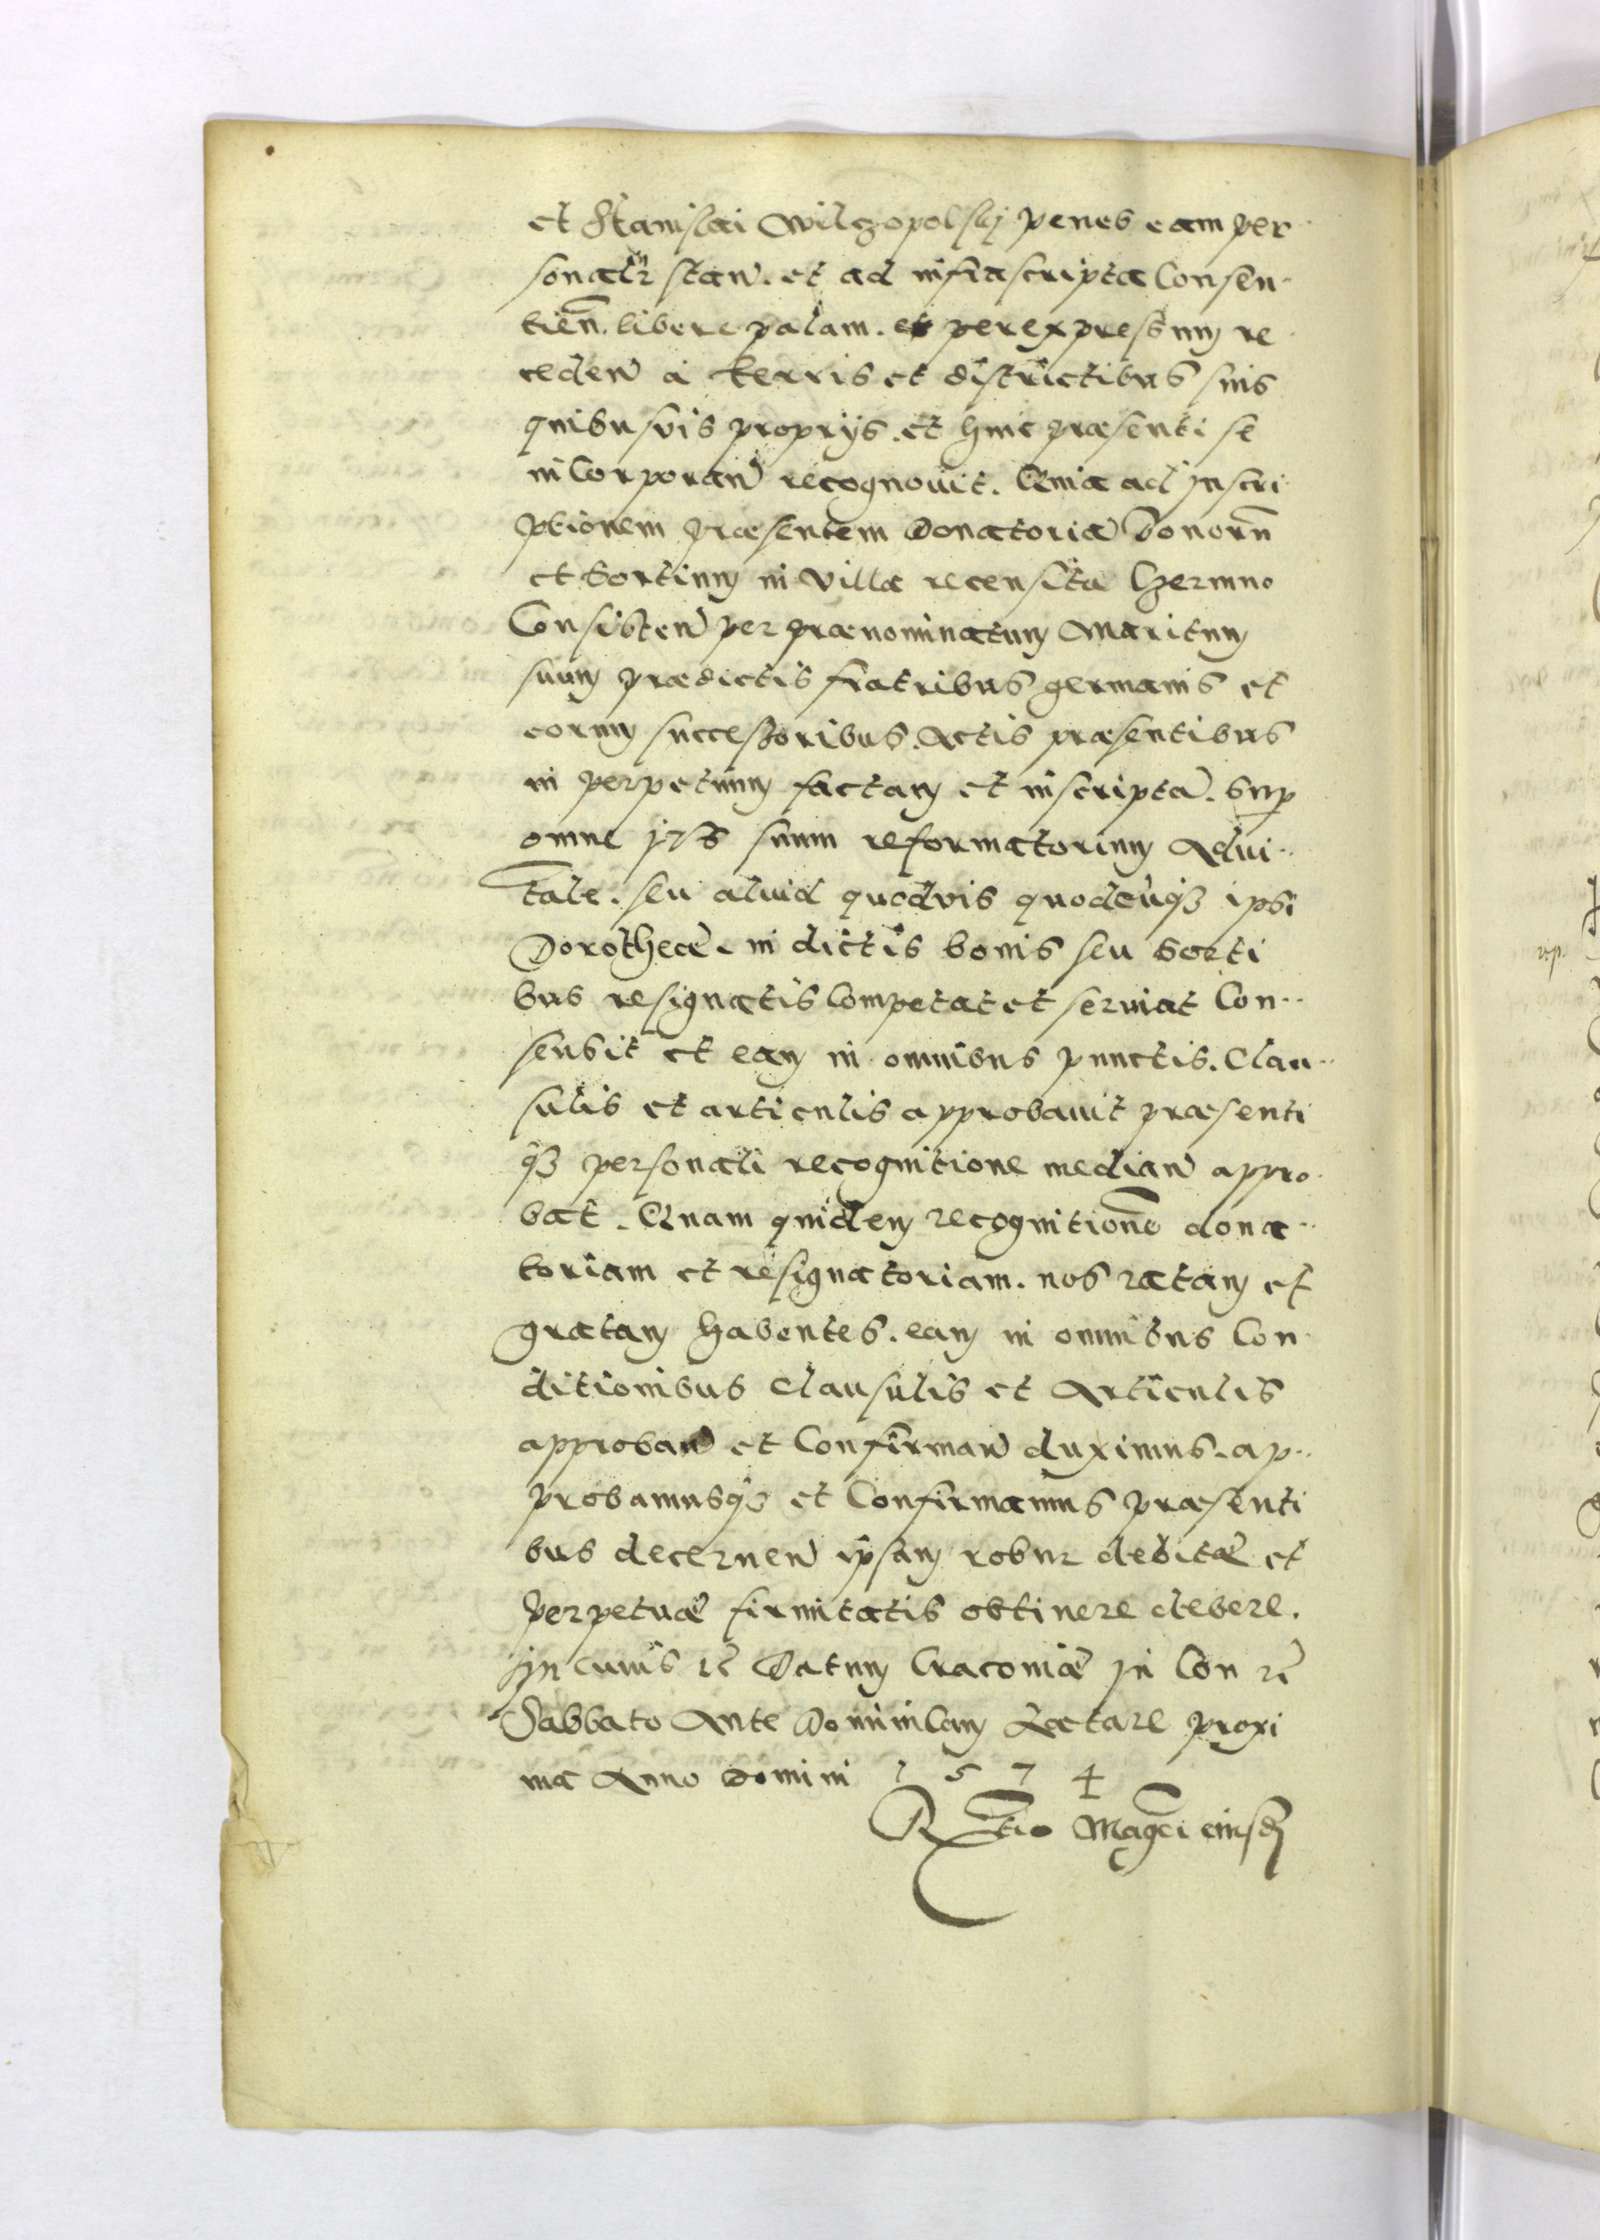 et Stanislai Wilczopolskj penes eam per
sonalr stan. et ad infrascripta Consen
tien. libere palam. et per expressum re
ceden a terris et districtibus suis
quibusvis proprijs. et huic præsenti se
inCorporan recognovit. Quia ad jnscri
ptionem præsentem Donatoria bonorn
et Sortium in villa recensita Czermno
Consisten per prænominatum Maritum
suum prædictis fratribus germanis et
eorum successoribus. Actis præsentibus
in perpetuum factam et inscripta. Sup
omne jus suum reformatorium Advi
tale. seu aliud quodvis quodcunqz ipsi
Dorotheæ. in dictis bonis seu Sorti
bus resignatis Competat et serviat Con
sensit et eam in omnibus punctis. Clau
sulis et articulis approbavit præsenti
qz personali recognitione median appro
bat. Quam quidem recognitione dona
toriam et resignatoriam. nos ratam et
gratam habentes. eam in omnibus Con
ditionibus Clausulis et Articulis
approban et Confirman duximus. ap
probamusqz et Confirmamus præsenti
bus decernen ipsam robur debitæ et
perpetuæ firmitatis obtinere debere.
Jn cuius re Datum Cracoviæ Jn Con re
Sabbato Ante DominiCam Lætare proxi
ma Anno Domini 1 5 7 4
Rtio Magci eiusdem